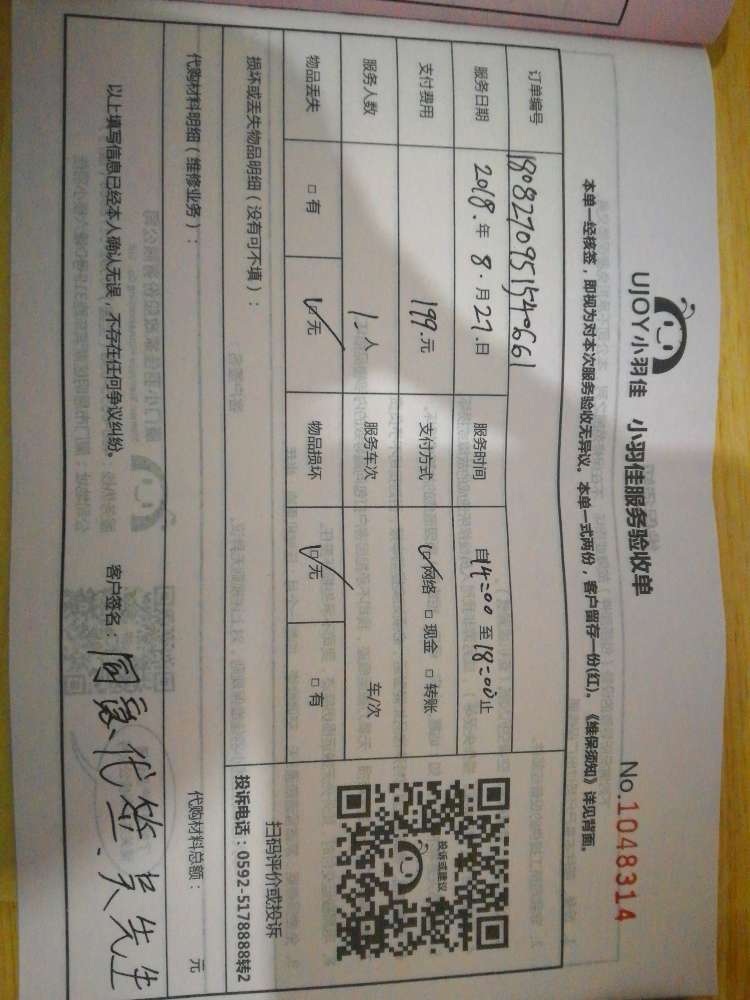 UJOY小羽佳 小羽佳服务验收单
No.1048314
本单一经核签，即视为对本次服务验收无异议。本单一式两份，客户留存一份(红)。《维保须知》详见背面。
订单编号 1808270951540661
服务日期 2018.年 8.月 27.日 服务时间 自14:00 至 18:00止
支付费用 199.元 支付方式 ☑网络 □ 现金 □ 转账
服务人数 1人 服务车次 车/次
物品丢失 □ 有 ☑无 物品损坏 ☑无 □ 有
投诉或建议
扫码评价或投诉
投诉电话：0592-5178888转2
损坏或丢失物品明细（没有可不填）：
代购材料明细（维修业务）：
代购材料总额： 元
以上填写信息已经本人确认无误，不存在任何争议纠纷。
客户签名：同意代签、吴先生